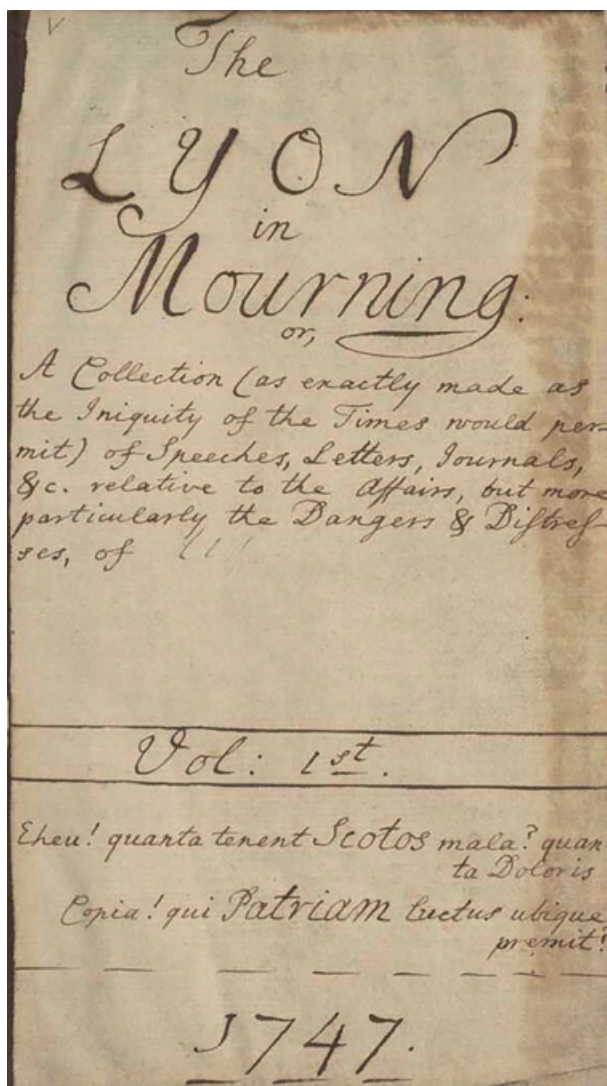 The
LYON
in
Mourning:
or,
A Collection (as exactly made as
the Iniquity of the Times would per-
mit) of Speeches, Letters, Journals,
&c. relative to the Affairs, but more
particularly the Dangers & Distres-
ses, of
Vol: 1st.
Eheu! quanta tenent Scotos mala? quan-
ta Doloris
Copia! qui Patriam luctus ubique
premit!
1747.